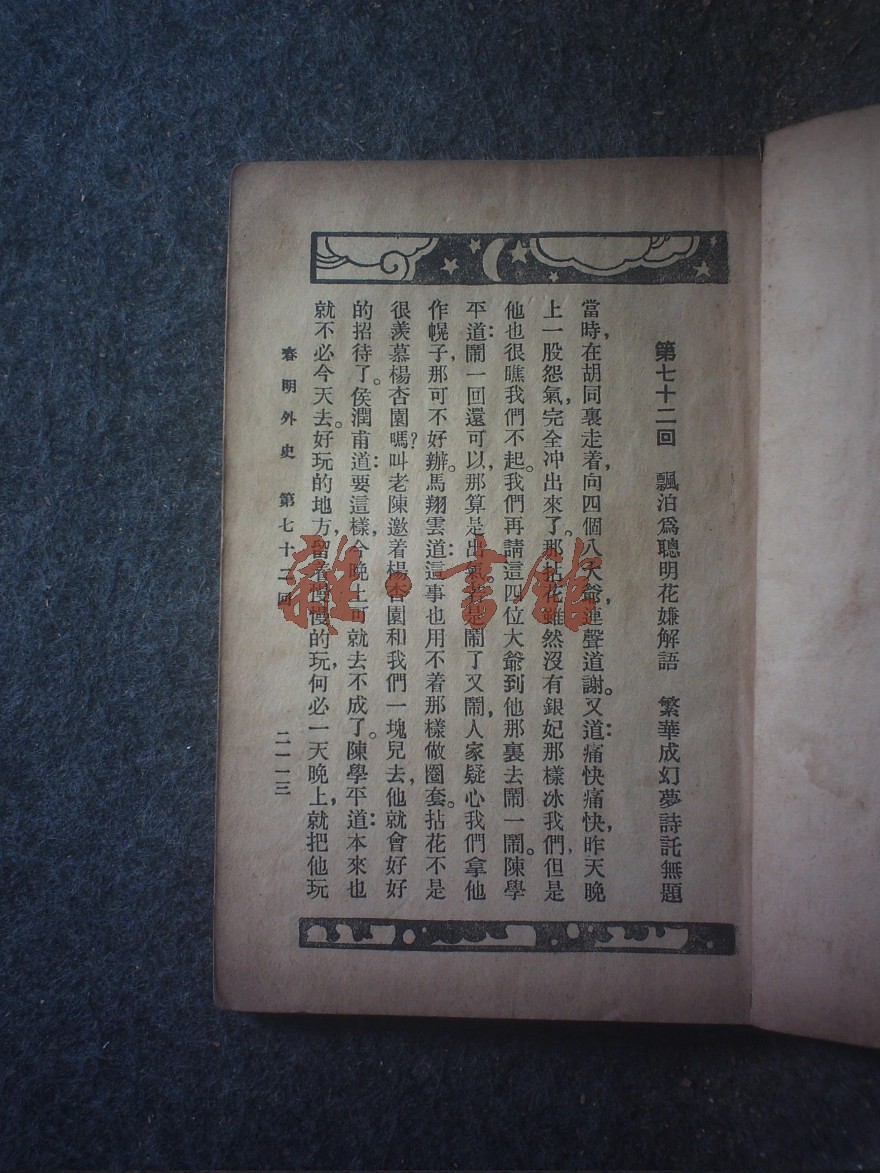 第七十二回　飄泊爲聰明花嫌解語　繁華成幻夢詩託無題
當時，在胡同裏走着，向四個八大爺，連聲道謝。又道：痛快痛快，昨天晚
上一股怨氣，完全冲出來了。那拈花雖然沒有銀妃那樣冰我們，但是
他也很瞧我們不起。我們再請這四位大爺到他那裏去鬧一鬧。陳學
平道：鬧一回還可以，那算是出氣。若是鬧了又鬧，人家疑心我們拿他
作幌子，那可不好辦。馬翔雲道：這事也用不着那樣做圈套。拈花不是
很羨慕楊杏園嗎？叫老陳邀着楊杏園和我們一塊兒去，他就會好好
的招待了。侯潤甫道：要這樣，今晚上可就去不成了。陳學平道：本來也
就不必今天去。好玩的地方，留着慢慢的玩，何必一天晚上，就把他玩
春明外史　第七十二回　二一一三
雜·書館